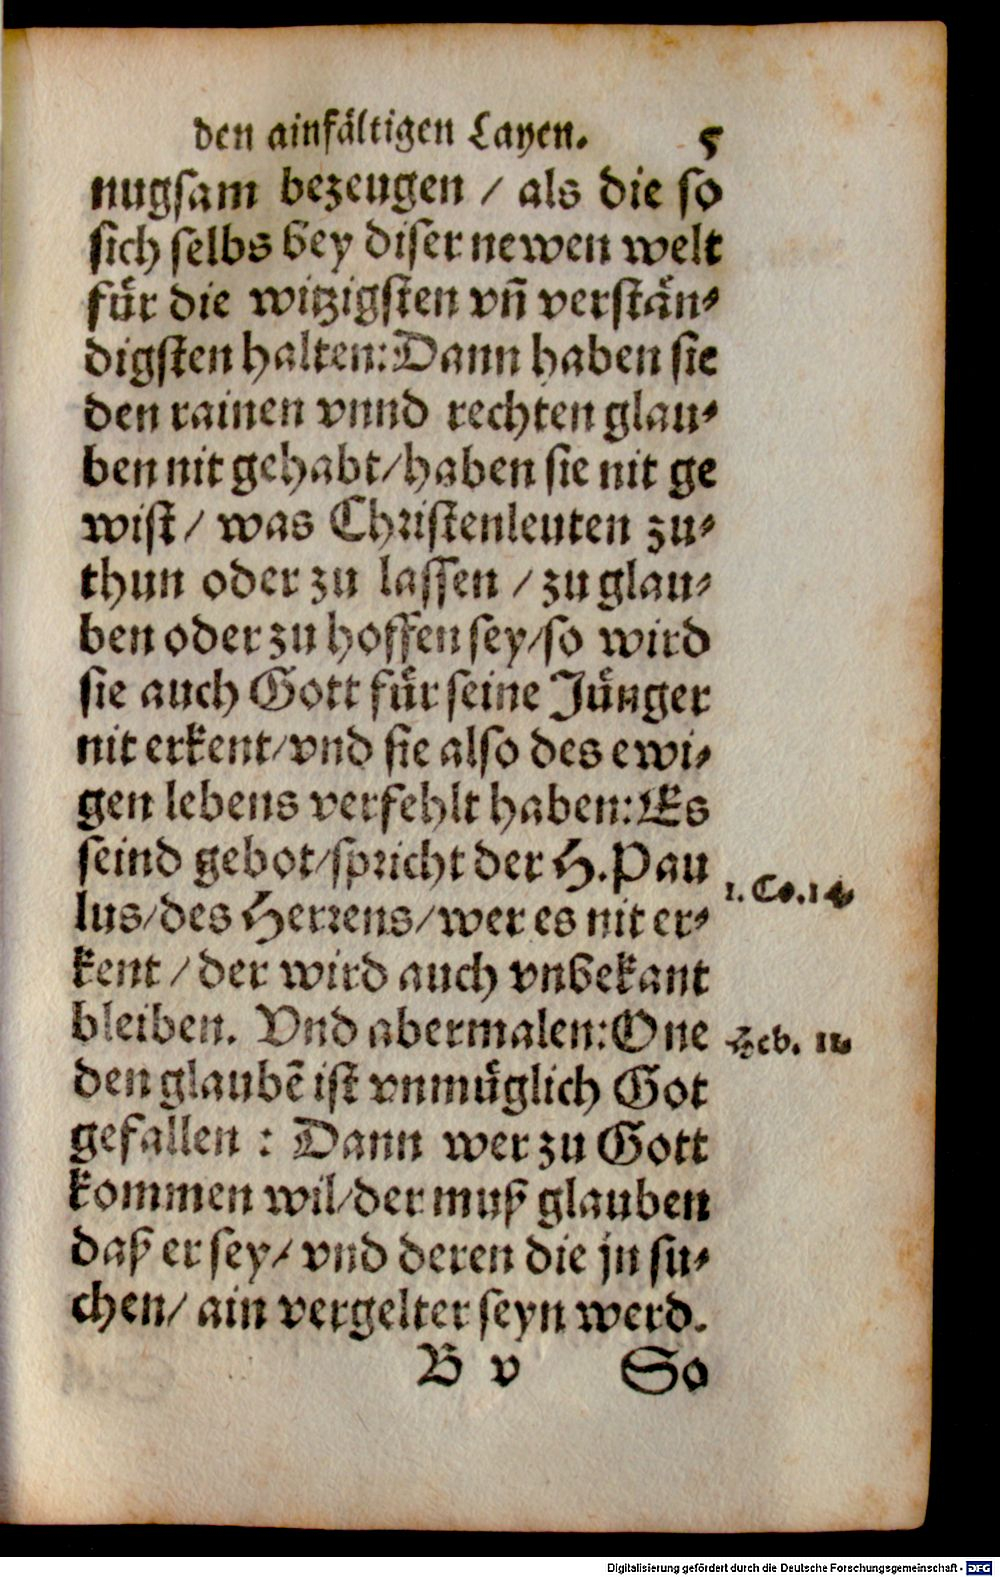 den ainfältigen Layen. 5
nugsam bezeugen / als die so
sich selbs bey diser newen welt
für die witzigsten vñ verstän⸗
digsten halten: Dann haben sie
den rainen vnnd rechten glau⸗
ben nit gehabt / haben sie nit ge
wist / was Christenleuten zu⸗
thun oder zu lassen / zu glau⸗
ben oder zu hoffen sey / so wird
sie auch Gott für seine Jünger
nit erkent / vnd sie also des ewi⸗
gen lebens verfehlt haben: Es
seind gebot / spricht der H. Pau
lus / des Herrens / wer es nit er⸗
kent / der wird auch vnbekant
bleiben. Vnd abermalen: One
den glaubẽ ist vnmüglich Got
gefallen : Dann wer zu Gott
kommen wil / der muß glauben
daß er sey / vnd deren die jn su⸗
chen / ain vergelter seyn werd.
1. Co. 14.
Heb. 11.
B v So
Digitalisierung gefördert durch die Deutsche Forschungsgemeinschaft - DFG